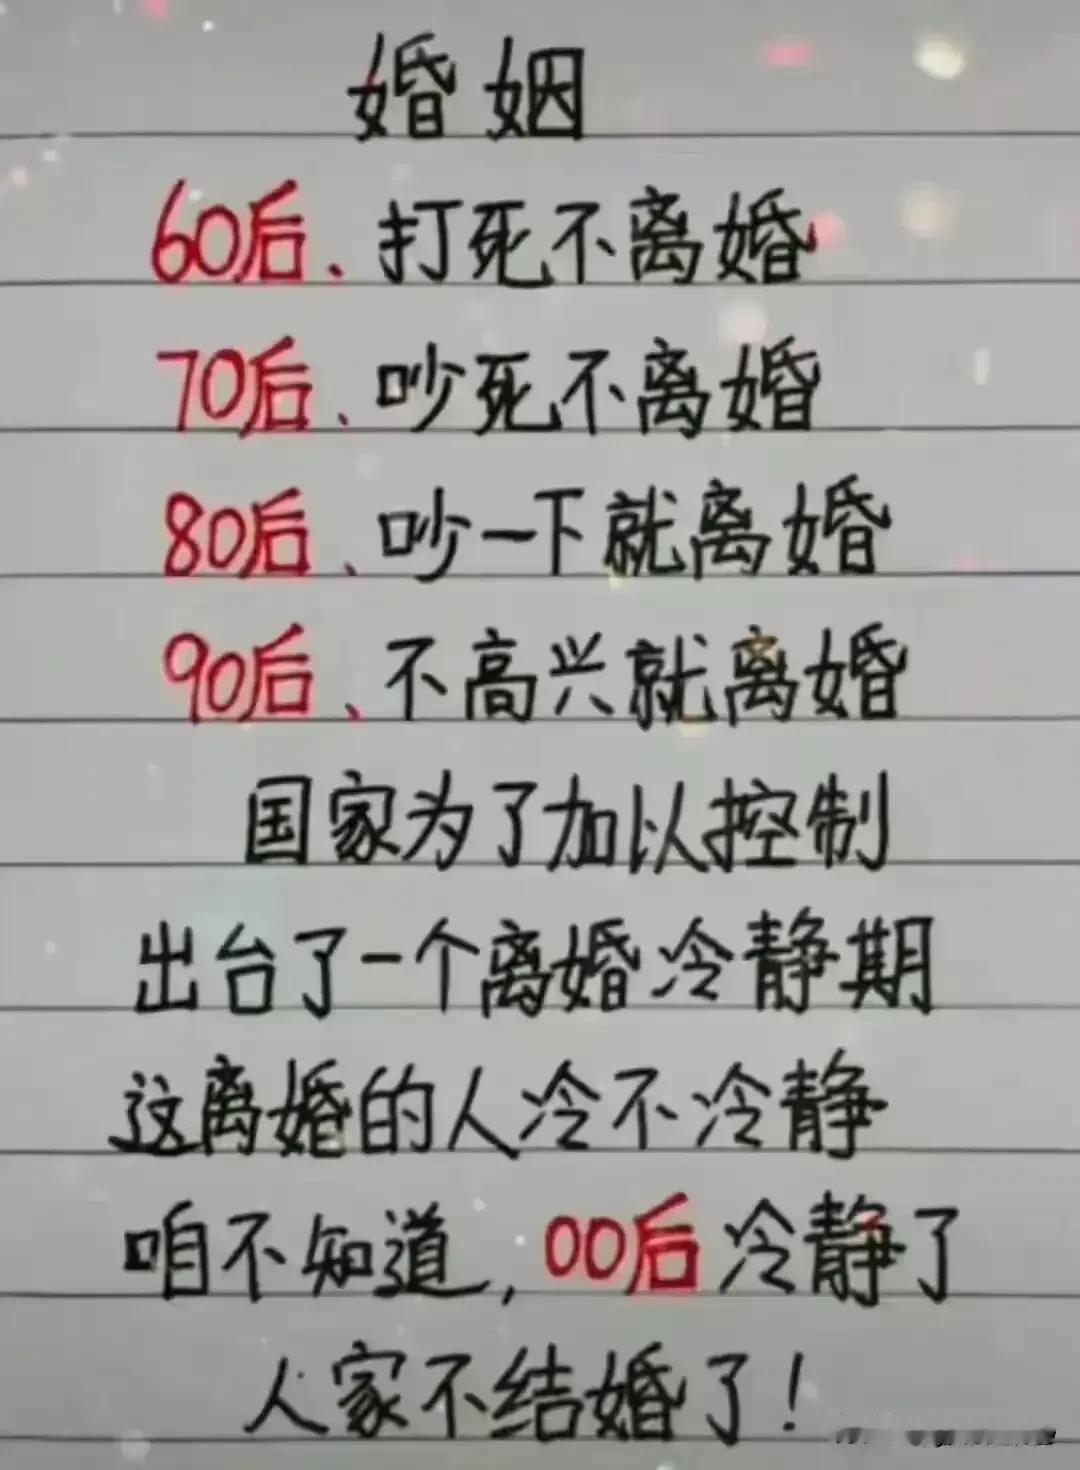 婚姻
60后、打死不离婚
70后、吵死不离婚
80后、吵一下就离婚
90后、不高兴就离婚
国家为了加以控制
出台了一个离婚冷静期
这离婚的人冷不冷静
咱不知道,00后冷静了
人家不结婚了!